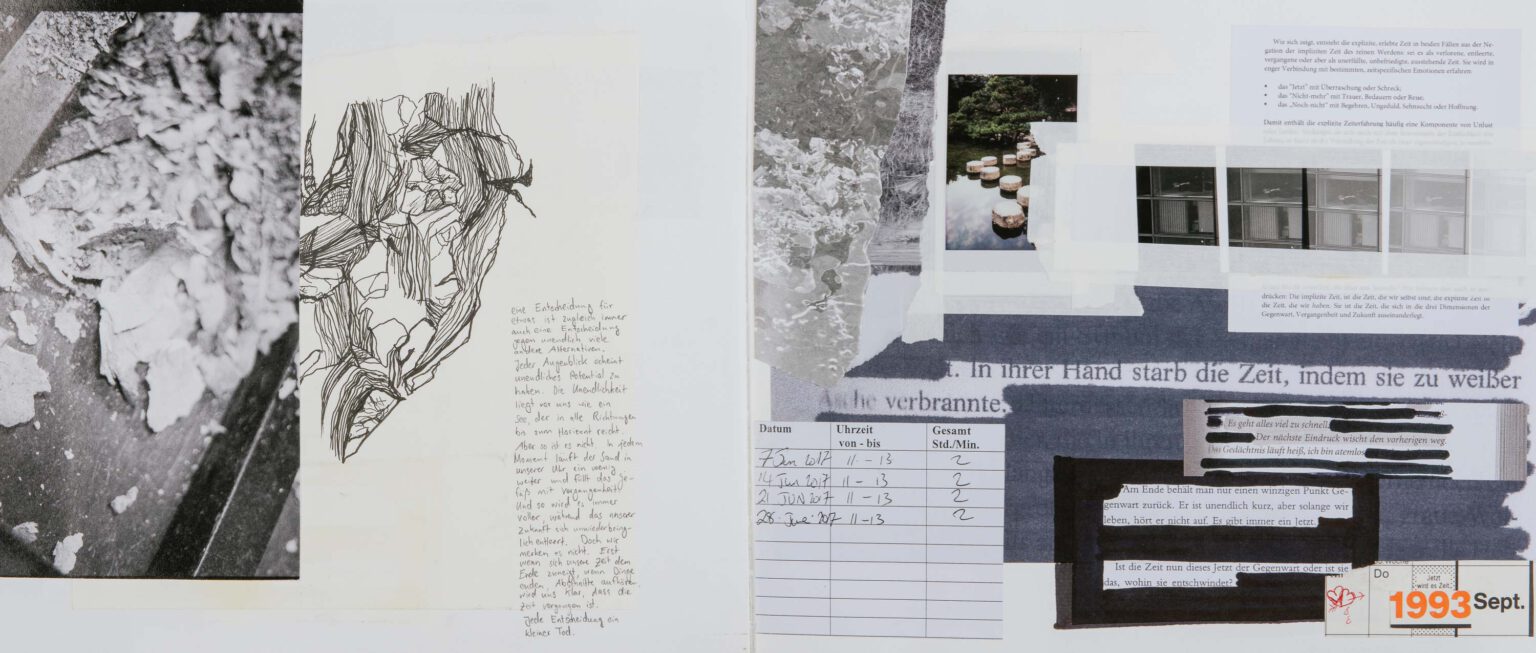 eine Entscheidung für
etwas ist zugleich immer
auch eine Entscheidung
gegen unendlich viele
andere Alternativen.
Jeder Augenblick scheint
unendliches Potential zu
haben. Die Unendlichkeit
liegt vor uns wie ein
See, der in alle Richtungen
bis zum Horizont reicht.
Aber so ist es nicht. In jedem
Moment läuft der Sand in
unserer Uhr ein wenig
weiter und füllt das Ge-
fäß mit Vergangenheit
Und so wird es immer
voller, während das unserer
Zukunft sich unwiederbring-
lich entleert. Doch wir
merken es nicht. Erst
wenn sich unsere Zeit dem
Ende zuneigt, wenn Dinge
enden, Abschnitte aufhören
wird uns klar, dass die
Zeit vergangen ist.
Jede Entscheidung ein
kleiner Tod.
Wie sich zeigt, entsteht die explizite, erlebte Zeit in beiden Fällen aus der Ne-
gation der impliziten Zeit des reinen Werdens: sei es als verlorene, entleerte,
vergangene oder aber als unerfüllte, unbefriedigte, ausstehende Zeit. Sie wird in
enger Verbindung mit bestimmten, zeitspezifischen Emotionen erfahren:
• das "Jetzt" mit Überraschung oder Schreck;
• das "Nicht-mehr" mit Trauer, Bedauern oder Reue;
• das „Noch-nicht" mit Begehren, Ungeduld, Sehnsucht oder Hoffnung.
Damit enthält die explizite Zeiterfahrung häufig eine Komponente von Unlust
drücken: Die implizite Zeit, ist die Zeit, die wir selbst sind; die explizite Zeit ist
die Zeit, die wir haben. Sie ist die Zeit, die sich in die drei Dimensionen der
Gegenwart, Vergangenheit und Zukunft auseinanderlegt.
t. In ihrer Hand starb die Zeit, indem sie zu weißer
Asche verbrannte.
Datum Uhrzeit von - bis Gesamt Std./Min.
7 Jun 2017 11 - 13 2
14 Jun 2017 11 - 13 2
21 JUN 2017 11 - 13 2
28. June 2017 11 - 13 2
Es geht alles viel zu schnell.
Der nächste Eindruck wischt den vorherigen weg.
Das Gedächtnis läuft heiß, ich bin atemlos
Am Ende behält man nur einen winzigen Punkt Ge-
genwart zurück. Er ist unendlich kurz, aber solange wir
leben, hört er nicht auf. Es gibt immer ein Jetzt.
Ist die Zeit nun dieses Jetzt der Gegenwart oder ist sie
das, wohin sie entschwindet?
Do
Jetzt
wird es Zeit
1993 Sept.